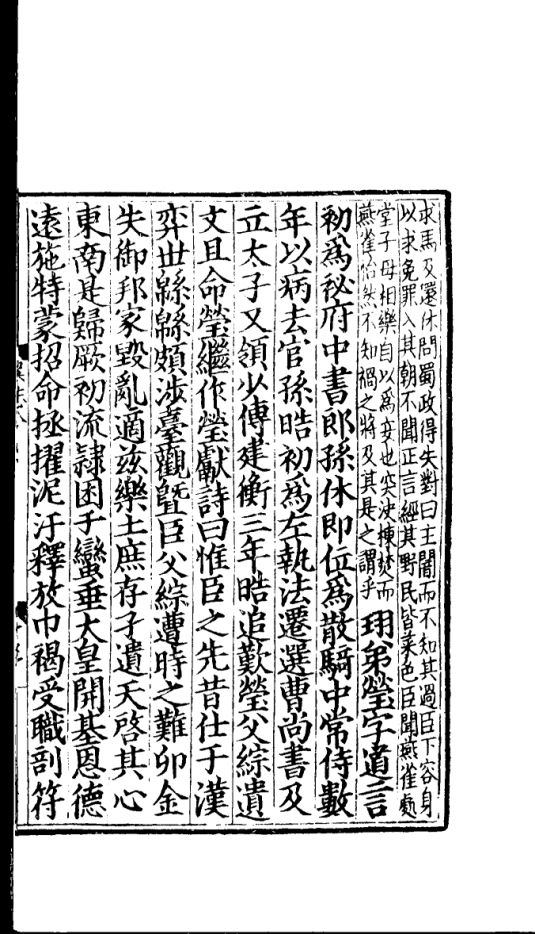 求馬及還休問蜀政得失對曰主闇而不知其過臣下容身
以求免罪入其朝不聞正言經其野民皆菜色臣聞燕雀處
堂子母相樂自以爲安也突決棟焚而
燕雀怡然不知禍之將及其是之謂乎
珝弟瑩字道言
初爲秘府中書郎孫休即位爲散騎中常侍數
年以病去官孫晧初爲左執法遷選曹尚書及
立太子又領少傅建衡三年晧追歎瑩父綜遺
文且命瑩繼作瑩獻詩曰惟臣之先昔仕于漢
弈世緜緜頗涉臺觀曁臣父綜遭時之難卯金
失御邦家毀亂適兹樂土庶存孑遺天啓其心
東南是歸厥初流隸困于蠻垂大皇開基恩德
遠施特蒙招命拯擢泥汙釋放巾褐受職剖符